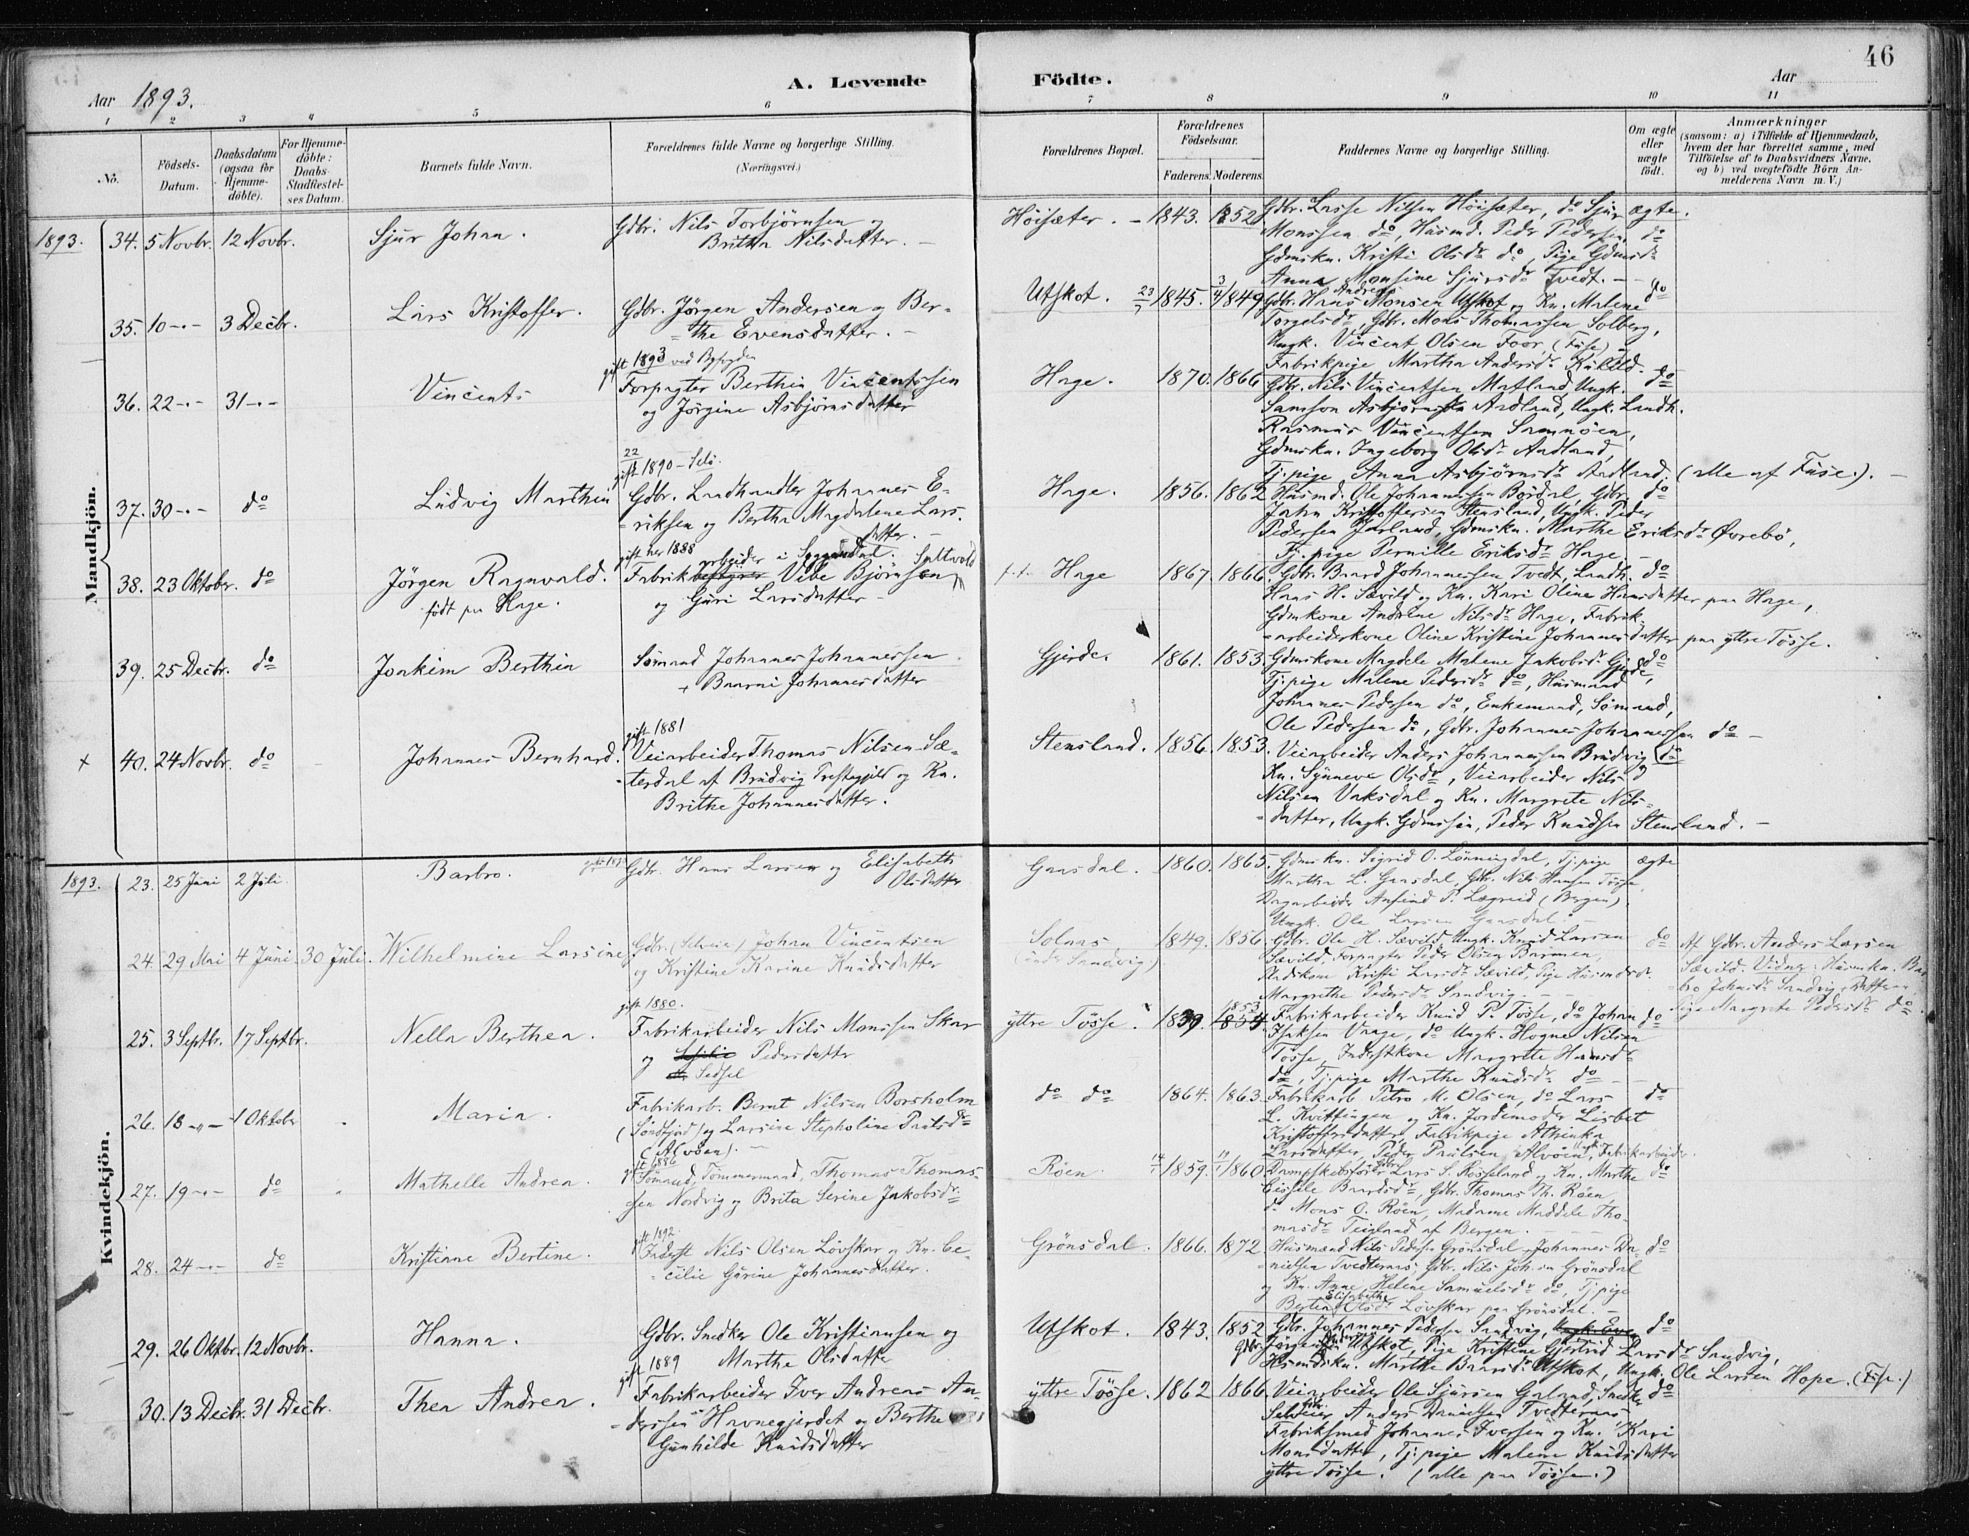 46
Aar 1893.
A. Levende Födte.
Aar
1 2 3 4 5 6 7 8 9 10 11
No.
Födsels-Datum.
Daabsdatum (ogsaa for Hjemme-döbte).
For Hjemme-döbte: Daabs-Stadfæstel-ses Datum.
Barnets fulde Navn.
Forældrenes fulde Navne og borgerlige Stilling.
(Næringsvei.)
Forældrenes Bopæl.
Forældrenes Födselsaar.
Faderens. Moderens.
Faddernes Navne og borgerlige Stilling.
Om ægte eller uægte födt.
Anmærkninger
(saasom: a) i Tilfælde af Hjemmedaab, hvem der har forrettet samme, med Tilföielse af to Daabsvidners Navne, og b) ved uægtefödte Börn An-melderens Navn m. V.)
Mandkjön.
1893. 34. 5 Novbr. 12 Novbr. Sjur Johan.
Gdbr. Nils Torbjörnsen og
Britha Nilsdatter. —
Höisæter. — 1843. 1852
Gdbr. Lasse Nilsen Höisæter, do Sjur ægte.
Monssen do, Husmd. Peder Pedersen do
Gdmskn. Kristi Olsdr do, Pige Gdmsdr
Anna Monsine Sjursdr Tvedt. —
35. 10 -"- 3 Decbr. Lars Kristoffer.
Gdbr. Jörgen Andersen og Ber-
the Evensdatter. —
Utskot. 1845. 1849
Gdbr. Hans Monsen Utskot og Kn. Malene do
Torgelsdr, Gdbr. Mons Thomassen Solberg,
Ungk. Vincent Olsen Foor, (Fuse) —
Fabrikpige Martha Andersdr
36. 22 -"- 31 -"- Vincents
gift 1893 ved Byfogden
Forpagter Berthin Vincentsen
og Jörgine Asbjörnsdatter
Hage. 1870. 1866
Gdbr. Nils Vincentsen Matland, Ungk. do
Samson Asbjörnsen Aadland, Ungk. Landh.
Rasmus Vincentsen Samnöen,
Gdmskn. Ingeborg Olsdr Aadland,
Tj.pige Anna Asbjörnsdr Aadland. (alle af Fuse). —
37. 30 -"- do Ludvig Marthin
gift 1890
Gdbr. Landhandler Johannes E-
riksen og Bertha Magdalene Lars-
datter. —
Hage. 1856. 1862
Husmd. Ole Johannessen Bordal, Gdbr. do
John Kristoffersen Stensland, Ungk. Peder
Pedersen Jarland, Gdmskn. Marthe Eriksdr Övrebö,
Tj.pige Pernille Eriksdr Hage. —
38. 23 Oktobr. do Jörgen Ragnvald.
födt paa Hage.
gift her 1888
Fabrikarbeider Vibe Björnsen
og Guri Larsdatter —
Hage 1867. 1866.
Gdbr. Baard Johannessen Tvedt, Landh. do
Hans H. Sævild og Kn. Kari Oline Hansdatter paa Hage,
Gdmkone Andrine Nilsdr Hage, Fabrik-
arbeiderkone Oline Kristine Johannesdatter paa yttre Tösse.
39. 25 Decbr. do Joakim Berthin
Sömand Johannes Johannessen
+ Baarni Johannesdatter
Gjerde. 1861. 1853.
Gdmskone Magdele Malene Jakobsdr Gjerde, do
Tj.pige Malene Pedersdr do, Husmand
Johannes Pedersen do, Enkemand, Sömand,
Ole Pedersen do, Gdbr. Johannes Johannessen do —
x 40. 24 Novbr. do Johannes Bernhard.
gift 1881
Veiarbeider Thomas Nilsen Sæ-
terdal af Brudvig Præstegjeld og Kn.
Brithe Johannesdatter.
Stensland. 1856. 1853.
Veiarbeider Anders Johannessen Brudvig og do
Kn. Synneve Olsdr, Veiarbeider Nils
Nilsen Vaksdal og Kn. Margrete Nils-
datter, Ungk. Gdmssön, Peder Knudsen Stensland. —
Kvindekjön.
1893. 23. 25 Juni 2 Juli. Barbro.
Gdbr. Hans Larsen og Elisabeth
Olsdatter
Gaasdal. 1860. 1865.
Gdmskn. Sigrid O. Lönningdal, Tj.pige ægte
Martha L. Gaasdal, Gdbr. Nils Hansen Tösse,
Dagarbeider Anfind P. Lægreid (Bergen),
Ungk. Ole Larsen Gaasdal. —
24. 29 Mai 4 Juni 30 Juli. Wilhelmine Larsine
Gdbr. (Selveier) Johan Vincentsen
og Kristine Karine Knudsdatter
Solnæs,
(under Sandvig.) 1849. 1856.
Gdbr. Ole H. Sævild, Ungk. Knud Larsen do
Sævild, Forpagter Peder Olsen Barmen,
Kristi Larsdr Sævild, Pige Husmdsdr
Margrethe Pedersdr Sandvig. —
Af Gdbr. Anders Larsen
Sævild. Vidner: Husmkn. Bar-
bro Johnsdr Sandvig, Datteren
Pige Margrete Pedersdr do.
25. 3 Septbr. 17 Septbr. Nella Berthea.
gift 1880.
Fabrikarbeider Nils Monssen Skar
og Pedersdatter
Sedsel
yttre Tösse. 1839 1853
Fabrikarbeider Knud P. Tösse, do Johan do
Isaksen Vaage, do Ungk. Hogne Nilsen
Tösse, Inderstkone Margrete Hansdr
do, Tj.pige Marthe Knudsdr do —
26. 18 -"- 1 Oktobr Maria.
Fabrikarb. Bernt Nilsen Borsholm
(Söndfjord) og Larsine Stepholine Paulsdr
(Alvöen). —
do do 1864. 1863.
Fabrikarb Petro M. Olsen, do Lars do
L. Kvittingen og Kn. Jordemoder Lisbet
Kristoffersdatter, Fabrikpige Athinka
Larsdatter, Peder Paulsen Alvöen, Fabrikarbeider.
27. 19 -"- do Mathelle Andrea.
gift 1886
Sömand, Tömmermand, Thomas Thomas-
sen Nordvig og Brita Serine Jakobsdr
Röen. 1859. 1860
Dampskibsförer Lars S. Rösseland og Kn. Marthe do
Baardsdr, Gdbr. Thomas Th. Röen,
do Mons O. Röen, Madame Maddele Tho-
masdr af Bergen. —
28. 24 -"- do Kristiane Bertine.
gift 1892.
Inderst Nils Olsen Lövskar og Kn. Ce-
cilie Gurine Johannesdatter.
Grönsdal. 1866. 1872
Husmand Nils Pedersen Grönsdal, Johannes Da- do
nielsen Tvedternæs, Gdbr. Nils Joh.sen Grönsdal
og Kn. Anne Helene Samuelsdr do, Tj.pige
Bertine Elisabeth Olsdr Lövskar paa Grönsdal. —
29. 26 Oktbr. 12 Novbr. Hanna.
Gdbr. Snedker Ole Kristiansen og
Marthe Olsdatter
Utskot. 1843. 1852
Gdbr. Johannes Pedersen Sandvig, do
Gdbr. Jörgen Andersen Utskot, Pige Kristine Gjertrud Larsdr Sandvig,
Husmdskn. Marthe Baardsdr Utskot, Ungk. Ole Larsen Hope. (Fuse.)
30. 13 Decbr. 31 Decbr. Thea Andrea.
gift 1889
Fabrikarbeider Iver Andreas An-
derssen Havnegjerdet og Berthe
Gunhilde Knudsdatter
yttre Tösse. 1862 1866.
Veiarbeider Ole Sjursen Snedker do
Selveier Anders Danielsen Tvedternæs
Fabriksmed Johannes Iversen og Kn. Kari
Monsdatter, Tj.pige Malene Knudsdatter
yttre Tösse. (alle paa Tösse.)